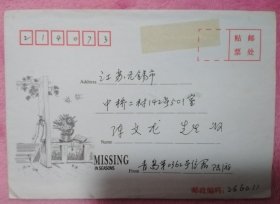 214073
贴邮
票处
Address
江苏无锡市
中桥二村142号501室
Name
陈文龙 先生 收
MISSING
IN SEASONS
From 青岛第0362号信箱
邮政编码：266011